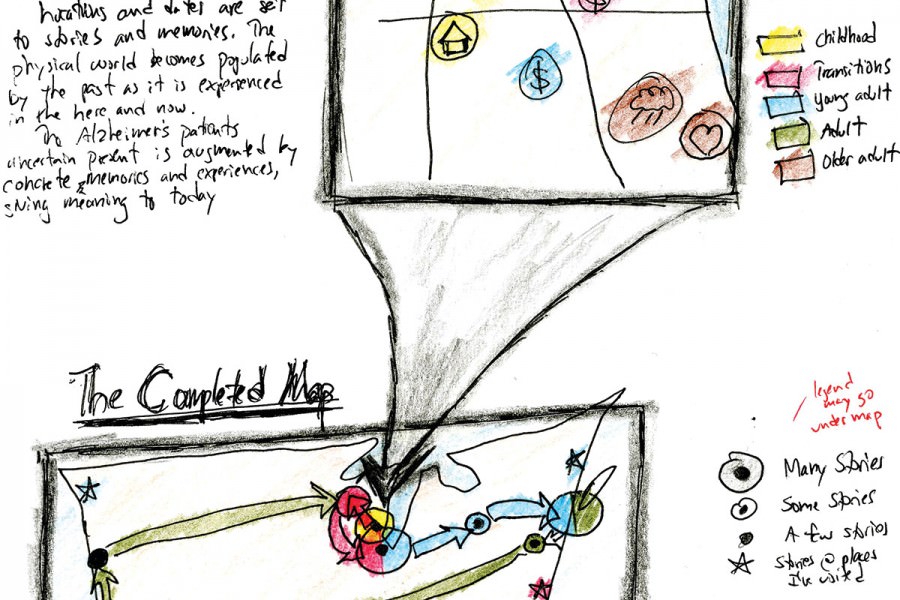 Locations and dates are set
to stories and memories. The
physical world becomes populated
by the past as it is experienced
in the here and now.
The Alzheimer's patients
uncertain present is augmented by
concrete memories and experiences,
giving meaning to today
$
childhood
Transitions
Young adult
Adult
Older adult
The Completed Map
legend
may go
under map
Many Stories
Some stories
A few stories
Stories @ places
I've visited